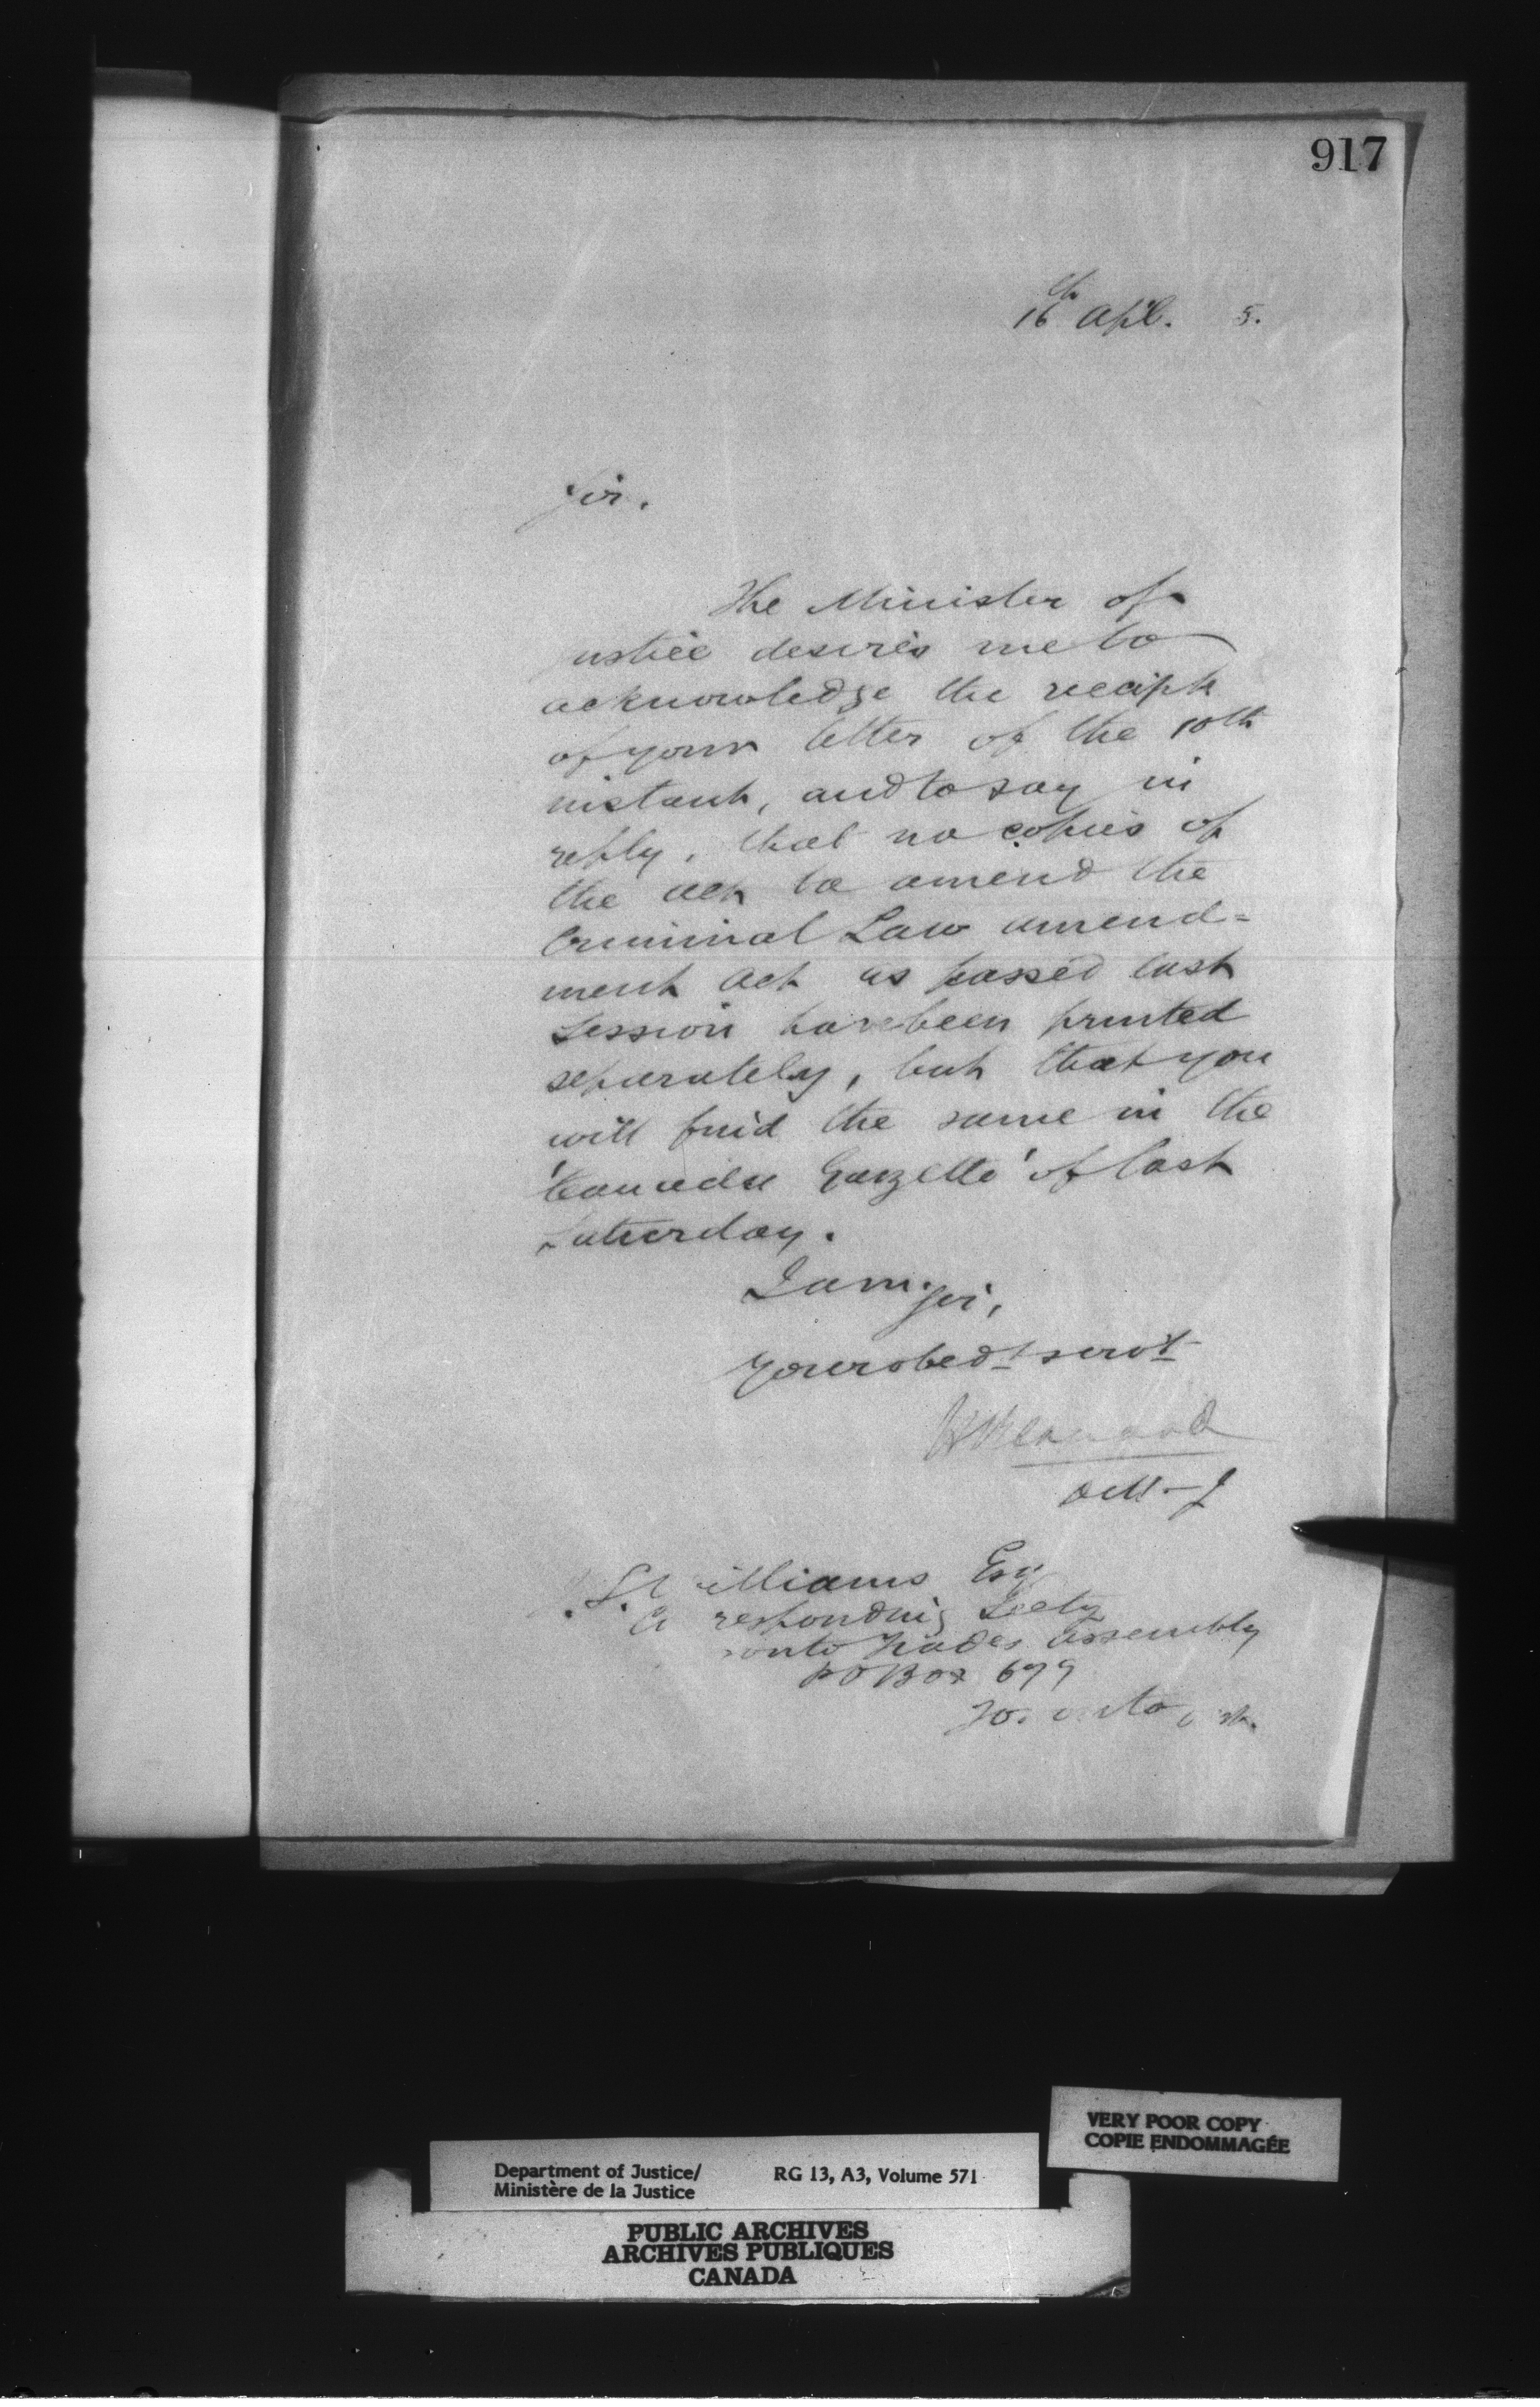 917
16th Apl. 5.
Sir.
The Minister of
ustice desires me to
acknowledge the receipt
of your letter of the 10th
instant, and to say in
reply, that no copies of
the act to amend the
Criminal Law amend=
ment act as passed last
Session have been printed
separately, but that you
will find the same in the
'Canada Gazette' of last
Saturday.
I am Sir,
Your obedt servt
D M J
S. illiams Esq
responding Secty
onto Trades Assembly
P O Box 679
To onto
VERY POOR COPY
COPIE ENDOMMAGÉE
Department of Justice/ RG 13, A3, Volume 571
Ministère de la Justice
PUBLIC ARCHIVES
ARCHIVES PUBLIQUES
CANADA